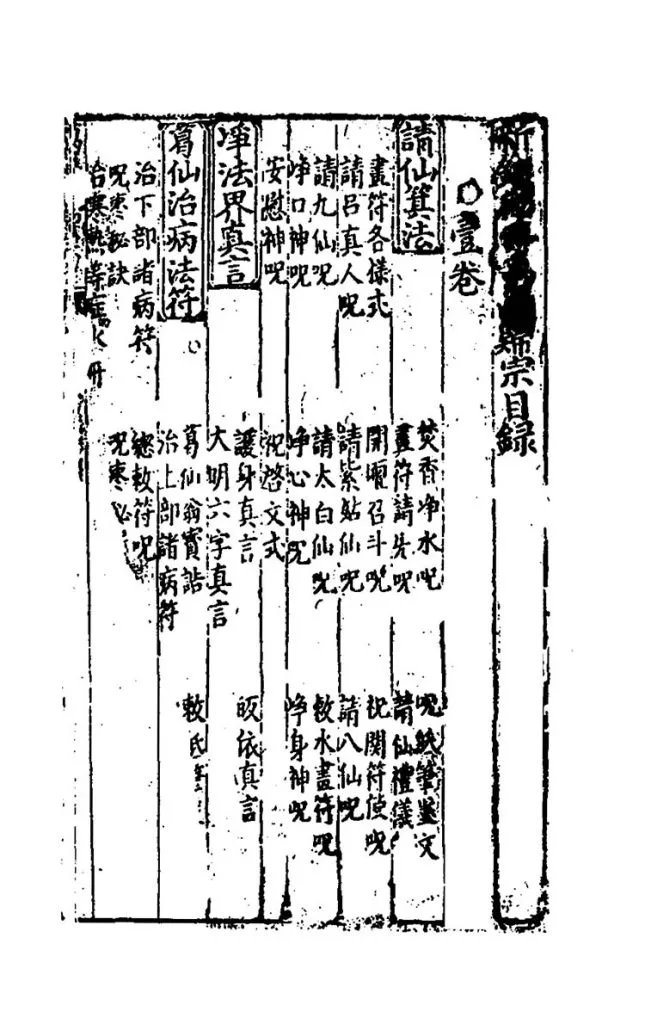 宗目録
壹卷
請仙箕法
焚香净水呪 呪紙筆墨文
畫符各様式 畫符請先呪 請仙禮儀
請吕真人呪 開壇召斗呪 祝関符使呪
請九仙呪 請紫姑仙呪 請八仙呪
净口神呪 請太白仙呪 敕水畫符呪
安慰神呪 净心神呪 净身神呪
祝啓文式
净法界真言
護身真言 皈依真言
大明六字真言
葛仙治病法符
葛仙翁寳誥 敕
治下部諸病符 治上部諸病符
呪棗秘訣 總敕符呪
治寒熱
呪棗